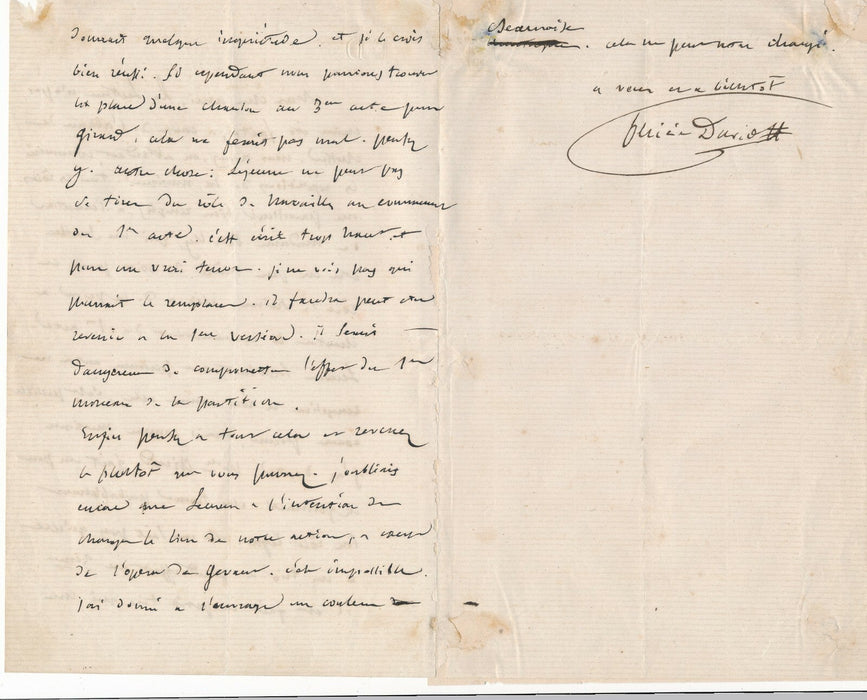 Donnait quelque inquiétude. et je le crois
bien réussi. Si cependant nous pouvions trouver
la place d'une chanson au 3me acte pour
Girard, cela ne ferait pas mal. pensez
y. autre chose: Lejeune ne peut pas
se tirer du rôle de au commencement
du 1er acte. c'est écrit trop haut, et
pour un vrai tenor. je ne vois pas qui
pourrait le remplacer. il faudra peut être
revenir a la 1ere version. Il serait
dangereux de compromettre l'effet du 1er
morceau de la partition.
Enfin pensez a tout cela et revenez
le plutôt que vous pourrez. j'oubliais
encore que a l'intention de
changer le lieu de notre action, a cause
de l'opéra de Gevaert. c'est impossible.
J'ai donné a l'ouvrage une couleur
. cela ne peut etre changé.
a vous et a bientôt
Félicien David